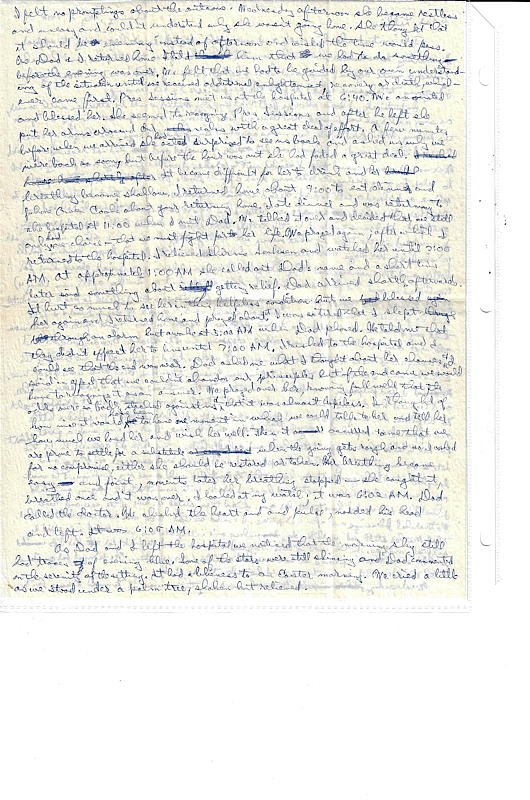 I felt no promptings about the outcome. Wednesday afternoon she became restless
and uneasy and couldn't understand why she wasn't going home. She thought that
it should be evening instead of afternoon and wished the time would pass.
As Dad and I returned home I told him that we had to do something
before the evening was over. We felt that we had to be guided by our own understand-
ing of the situation until we received additional enlightenment, recovery or death, which-
ever came first. Pres Sessions met us at the hospital at 6:40. We anointed
and blessed her. She seemed to recognize Pres Sessions and after he left she
put her arms around our with a great deal of effort. A few minutes
before when we arrived she acted surprised to see us back and asked us why we
were back so soon but before the hour was out she had faded a great deal.
It became difficult for her to drink and her
breathing became shallow. I returned home about 9:00 to eat dinner and
about your returning home. I ate dinner and was returning to
the hospital at 11:00 when I met Dad. We talked it over and decided that we still
only had one choice - that we must fight for her life. We prayed again, after which I
returned to the hospital. I relieved the nurse and watched her until 2:00
AM. At approximately 1:00 AM she called out Dad's name and a short time
later said something about getting relief. Dad arrived shortly afterwards.
It hurt so much to see her in this helpless condition but we blessed
her again and I returned home and prayed about I was so tired that I slept
through an alarm but awoke at 5:00 AM when Dad phoned. He told me that
they didn't expect her to live until 7:00 AM. I rushed to the hospital and I
could see that the end was near. Dad asked me what I thought about her chances, and I
said in effect that we couldn't abandon our principles but if the end came we would
have to accept it as an answer. We prayed over her, knowing full well that the
odds were so badly stacked against us that it was almost hopeless. In I thought of
how nice it would be to have one moment in which we could talk to her and tell her
how much we loved her and wish her well. Then it occurred to me that we
are prone to settle for a substitute when the going gets rough and so I asked
for no compromise, either she should be restored or taken. Her breathing became
easy and faint, moments later her breathing stopped - she caught it
breathed once and it was over. I looked at my watch, it was 6:02 AM. Dad
called the doctor. He checked the heart and pulse, nodded his head
and left. It was 6:05 AM.
As Dad and I left the hospital we noticed that the morning sky still
had traces of evening blue. Some of the stars were still shining and Dad commented
on the serenity of the setting. It had a likeness to an Easter morning. We cried a little
as we stood under a palm tree, shaken but relieved.